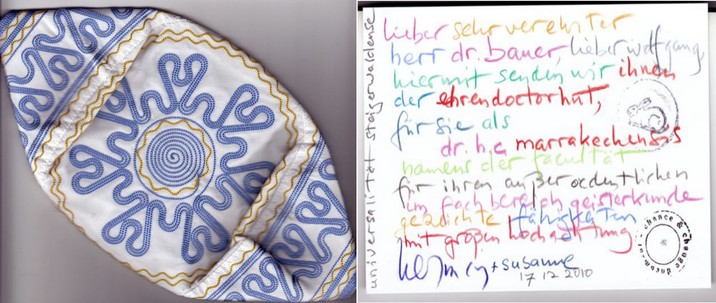 universalität steigerwaldense
lieber sehr verehrter
herr dr. bauer, lieber wolfgang,
hiermit senden wir ihnen
der ehrendoctorhut,
für sie als
dr. h.c. marrakechensis
namens der facultät
für ihren außerordentlichen
im fachbereich geisterkunde
fähigkeiten
mit großen hochachtung
+ susanne
17 12 2010
chance & change